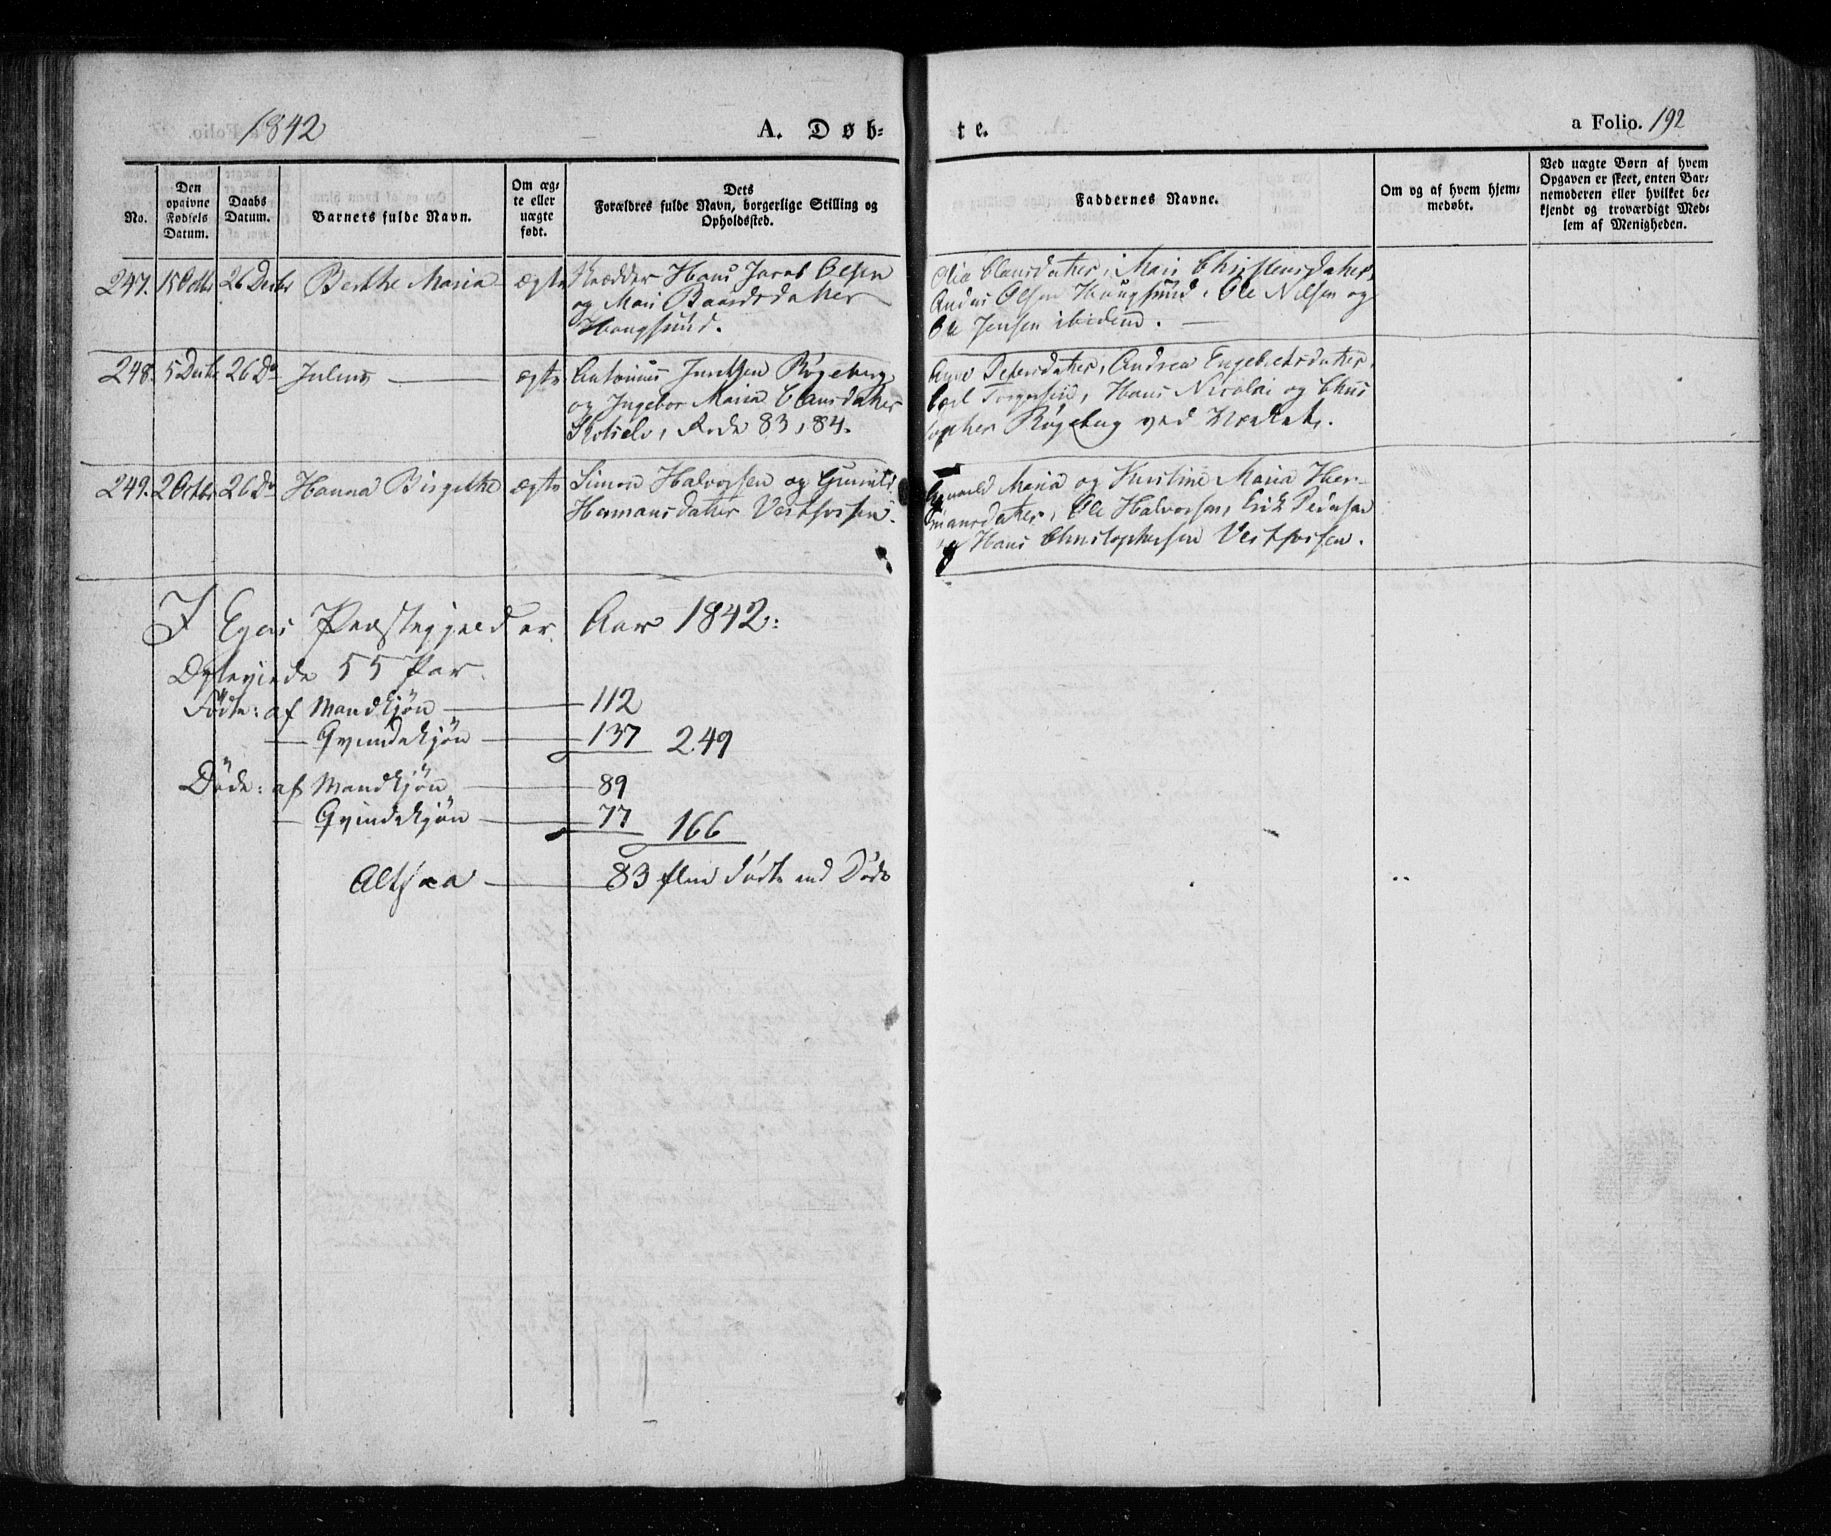 1842
A. Døb-
te.
a Folio. 192
No.
Den opgivne Fødsels Datum.
Daabs Datum.
Barnets fulde Navn.
Om ægte eller uægte født.
Dets
Forældres fulde Navn, borgerlige Stilling og
Opholdssted.
Faddernes Navne.
Om og af hvem hjem-
medøbt.
Ved uægte Børn af hvem
Opgaven er skeet, enten Bar-
nemoderen eller hvilket be-
kjendt og troværdigt Med-
lem af Menigheden.
247. 15 Octbr 26 Decbr Berthe Maria ægte Skrædder Hans Jacob Olsen
og Mari Baardsdatter
Hougsund.
Olia Clausdatter, Mari Christensdatter,
Anders Olsen Hougsund, Ole Nilsen og
Ole Jensen ibidem.
248. 5 Decbr 26 Do Julius ægte Antonius Røgeberg
og Ingebor Maria Clausdatter
Skotselv, Rode 83, 84.
Anne Pedersdatter, Andrea Engebretsdatter,
Carl Torgersen, Hans Nicolai og Chris
topher Røgeberg ved Værket.
249. 2 Octbr 26 Do Hanna Birgitthe ægte Simon Halvorsen og Gunild
Hermansdatter Vestfossen.
Gunild Maria og Kirstine Maria Her-
mansdatter, Ole Halvorsen, Erik Pedersen
og Hans Christophersen Vestfossen.
I Egers Præstegjeld er Aar 1842:
Ægteviede 55 Par.
Födte: af Mandkjön 112
— Qvindekjön 137 249
Döde: af Mandkjön 89
— Qvindekjön 77 166
Altsaa 83 flere Födte end Döde